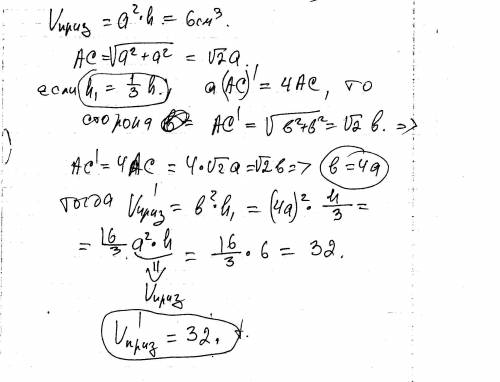 Vприз = a²·h = 6см³.
AC = √a²+a² = √2a.
если h₁ = 1/3 h., а (AC)' = 4AC, то
сторона b = AC' = √b²+b² = √2 b. =>
AC' = 4AC = 4·√2a = √2b => b = 4a
тогда V'приз = b²·h₁ = (4a)²·h/3 =
= 16/3 a²·h = 16/3 · 6 = 32.
Vприз
V'приз = 32.